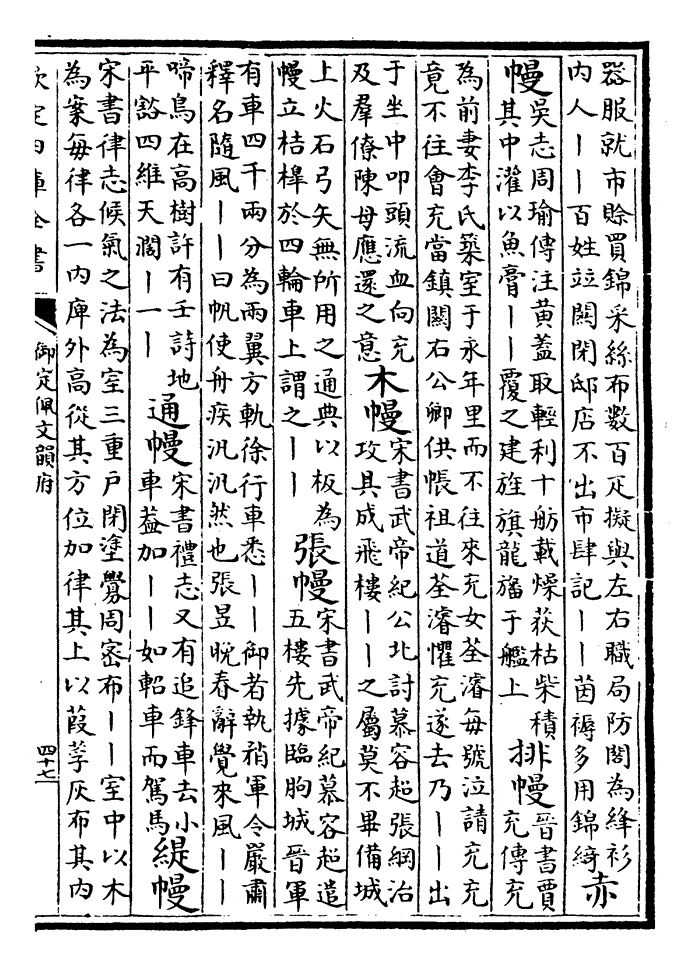 器服就市賒買錦采絲布數百疋擬與左右職局防閤為絳衫
內人丨丨百姓竝闗閉邸店不出市肆記丨丨茵褥多用錦綺
赤
幔
吳志周瑜傳注黃蓋取輕利十舫載燥荻枯柴積
其中灌以魚膏丨丨覆之建旌旗龍旛于艦上
排幔
晉書賈
充傳充
為前妻李氏築室于永年里而不往來充女荃濬每號泣請充充
竟不往會充當鎮闗右公卿供帳祖道荃濬懼充遂去乃丨丨出
于坐中叩頭流血向充
及羣僚陳母應還之意
木幔
宋書武帝紀公北討慕容超張綱治
攻具成飛樓丨丨之屬莫不畢備城
上火石弓矢無所用之通典以板為
幔立桔槹於四輪車上謂之丨丨
張幔
宋書武帝紀慕容超遣
五樓先據臨朐城晉軍
有車四千兩分為兩翼方軌徐行車悉丨丨御者執矟軍令嚴肅
釋名隨風丨丨曰帆使舟疾汎汎然也張昱晚春辭覺來風丨丨
啼鳥在高樹許有壬詩地
平豁四維天濶丨一丨
通幔
宋書禮志又有追鋒車去小
車葢加丨丨如軺車而駕馬
緹幔
宋書律志候氣之法為室三重戶閉塗釁周密布丨丨室中以木
為案每律各一內庳外高從其方位加律其上以葭莩灰布其內
欽定四庫全書
御定佩文韻府
四十七